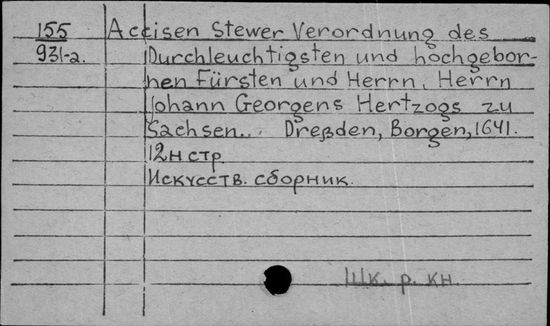 155 Accisen Stewer Verordnung des
931-2. Durchleuchtigsten und hochgebor-
nen Fürsten und Herrn, Herrn
Johann Georgens Hertzogs zu
Sachsen... Dreßden, Borgen, 1641.
12н стр.
Искусств. сборник.
Шк. р. кн.